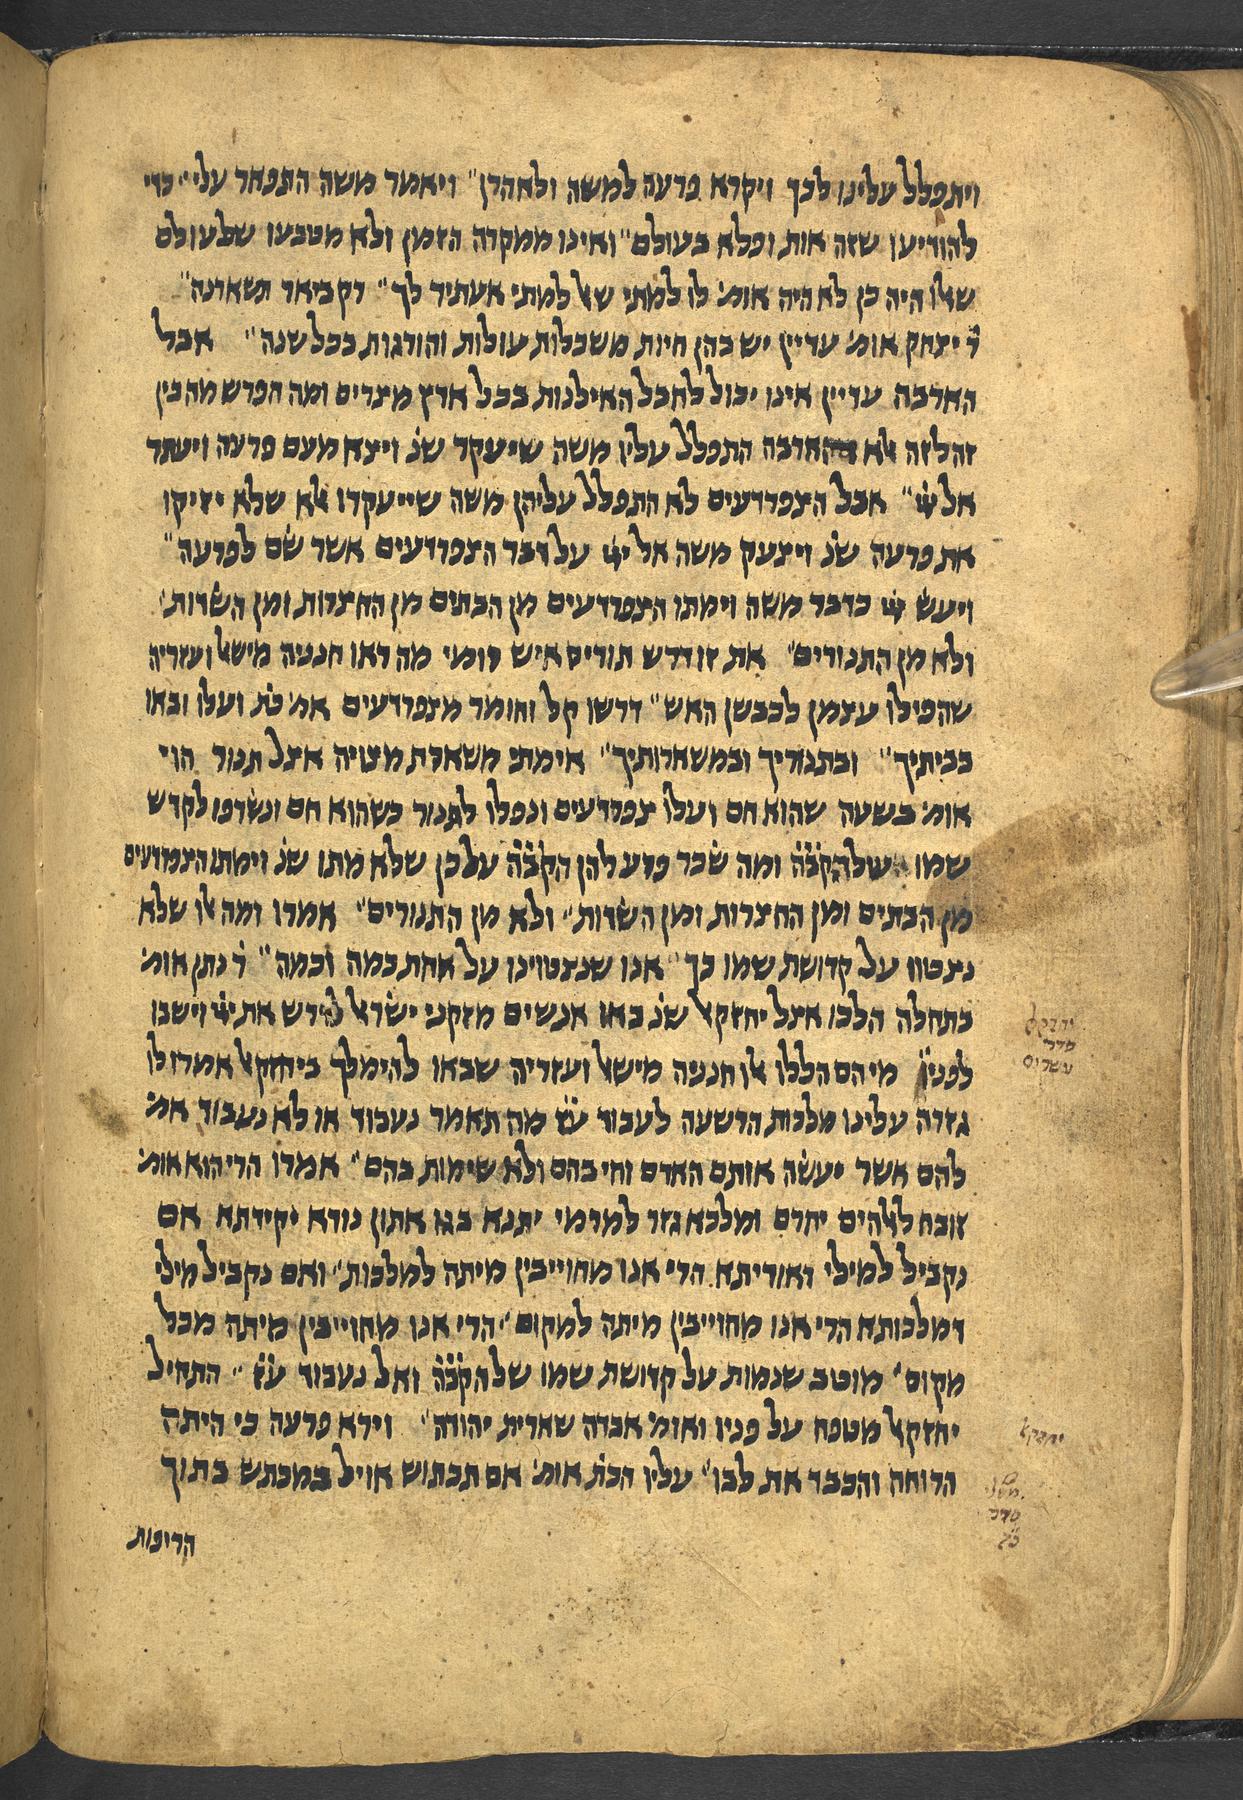 ויתפלל עלינו לכך ויקרא פרעה למשה ולאהרן" ויאמר משה התפאר עלי" כדי
להודיען שזה אות ופלא בעולם" ואינו ממקרה הזמן ולא מטבעו שלעולם
שאלו היה כן לא היה אומ' לו למתי שאל למתי אעתיר לך" רק ביאר תשארנה"
ר' יצחק אומ' עדיין יש בהן חיות משכלות עולות והורגות בכל שנה" אבל
הארבה עדיין אינו יכול לחבל האילנות בכל ארץ מצרים ומה הפרש מה בין
זה לזה אלא הארבה התפלל עליו משה שיעקר שנ' ויצא מעם פרעה ויעתר
אל ייי" אבל הצפרדעים לא התפלל עליהן משה שייעקרו אלא שלא יזיקו
את פרעה שנ' ויצעק משה אל ייי על דבר הצפרדעים אשר שם לפרעה"
ויעש ייי כדבר משה וימתו הצפרדעים מן הבתים מן החצרות ומן השדות'
ולא מן התנורים" את זו דרש תודיס איש רומי מה ראו חנניה מישאל ועזריה
שהפילו עצמן לכבשן האש" דרשו קל וחומר מצפרדעים אמ' כת' ועלו ובאו
בביתיך" ובתנוריך ובמשארותיך" אימתי משארת מצויה אצל תנור הוי
אומ' בשעה שהוא חם ועלו צפרדעים ונפלו לתנור כשהוא חם ונשרפו לקדש
שמו שלהקב"ה ומה שכר פרע להן הקב"ה על כן שלא מתו שנ' וימתו הצפרדעים
מן הבתים ומן החצרות ומן השדות" ולא מן התנורים" אמרו ומה אלו שלא
נצטוו על קדושת שמו כך" אנו שנצטוינו על אחת כמה וכמה" ר' נתן אומ'
בתחלה הלכו אצל יחזקאל שנ' באו אנשים מזקני ישראל לדרש את ייי וישבו
לפניו מי הם הללו אלו חנניה מישאל ועזריה שבאו להימלך ביחזקאל אמרו לו
גזרה עלינו מלכות הרשעה לעבוד ע"ז מה תאמר נעבוד או לא נעבוד אמ'
להם אשר יעשה אותם האדם וחי בהם ולא שימות בהם" אמרו הרי הוא אומ'
זובח לאלהים יחרם ומלכא גזר למרמי יתנא בגו אתון נורא יקידתא אם
נקביל למילי דאוריתא הרי אנו מחוייבין מיתה למלכות" ואם נקביל מילי
דמלכותא הרי אנו מחוייבין מיתה למקום" הרי אנו מחוייבין מיתה מכל
מקום' מוטב שנמות על קדושת שמו של הקב"ה ואל נעבוד ע"ז" התחיל
יחזקאל מטפח על פניו ואומ' אבדה שארית יהודה" וירא פרעה כי היתה
הרוחה והכבד את לבו" עליו הכת' אומ' אם תכתוש אויל במכתש בתוך
הריפות
יחזקאל
סדר
עשרים
יחזקאל
משלי
סדר